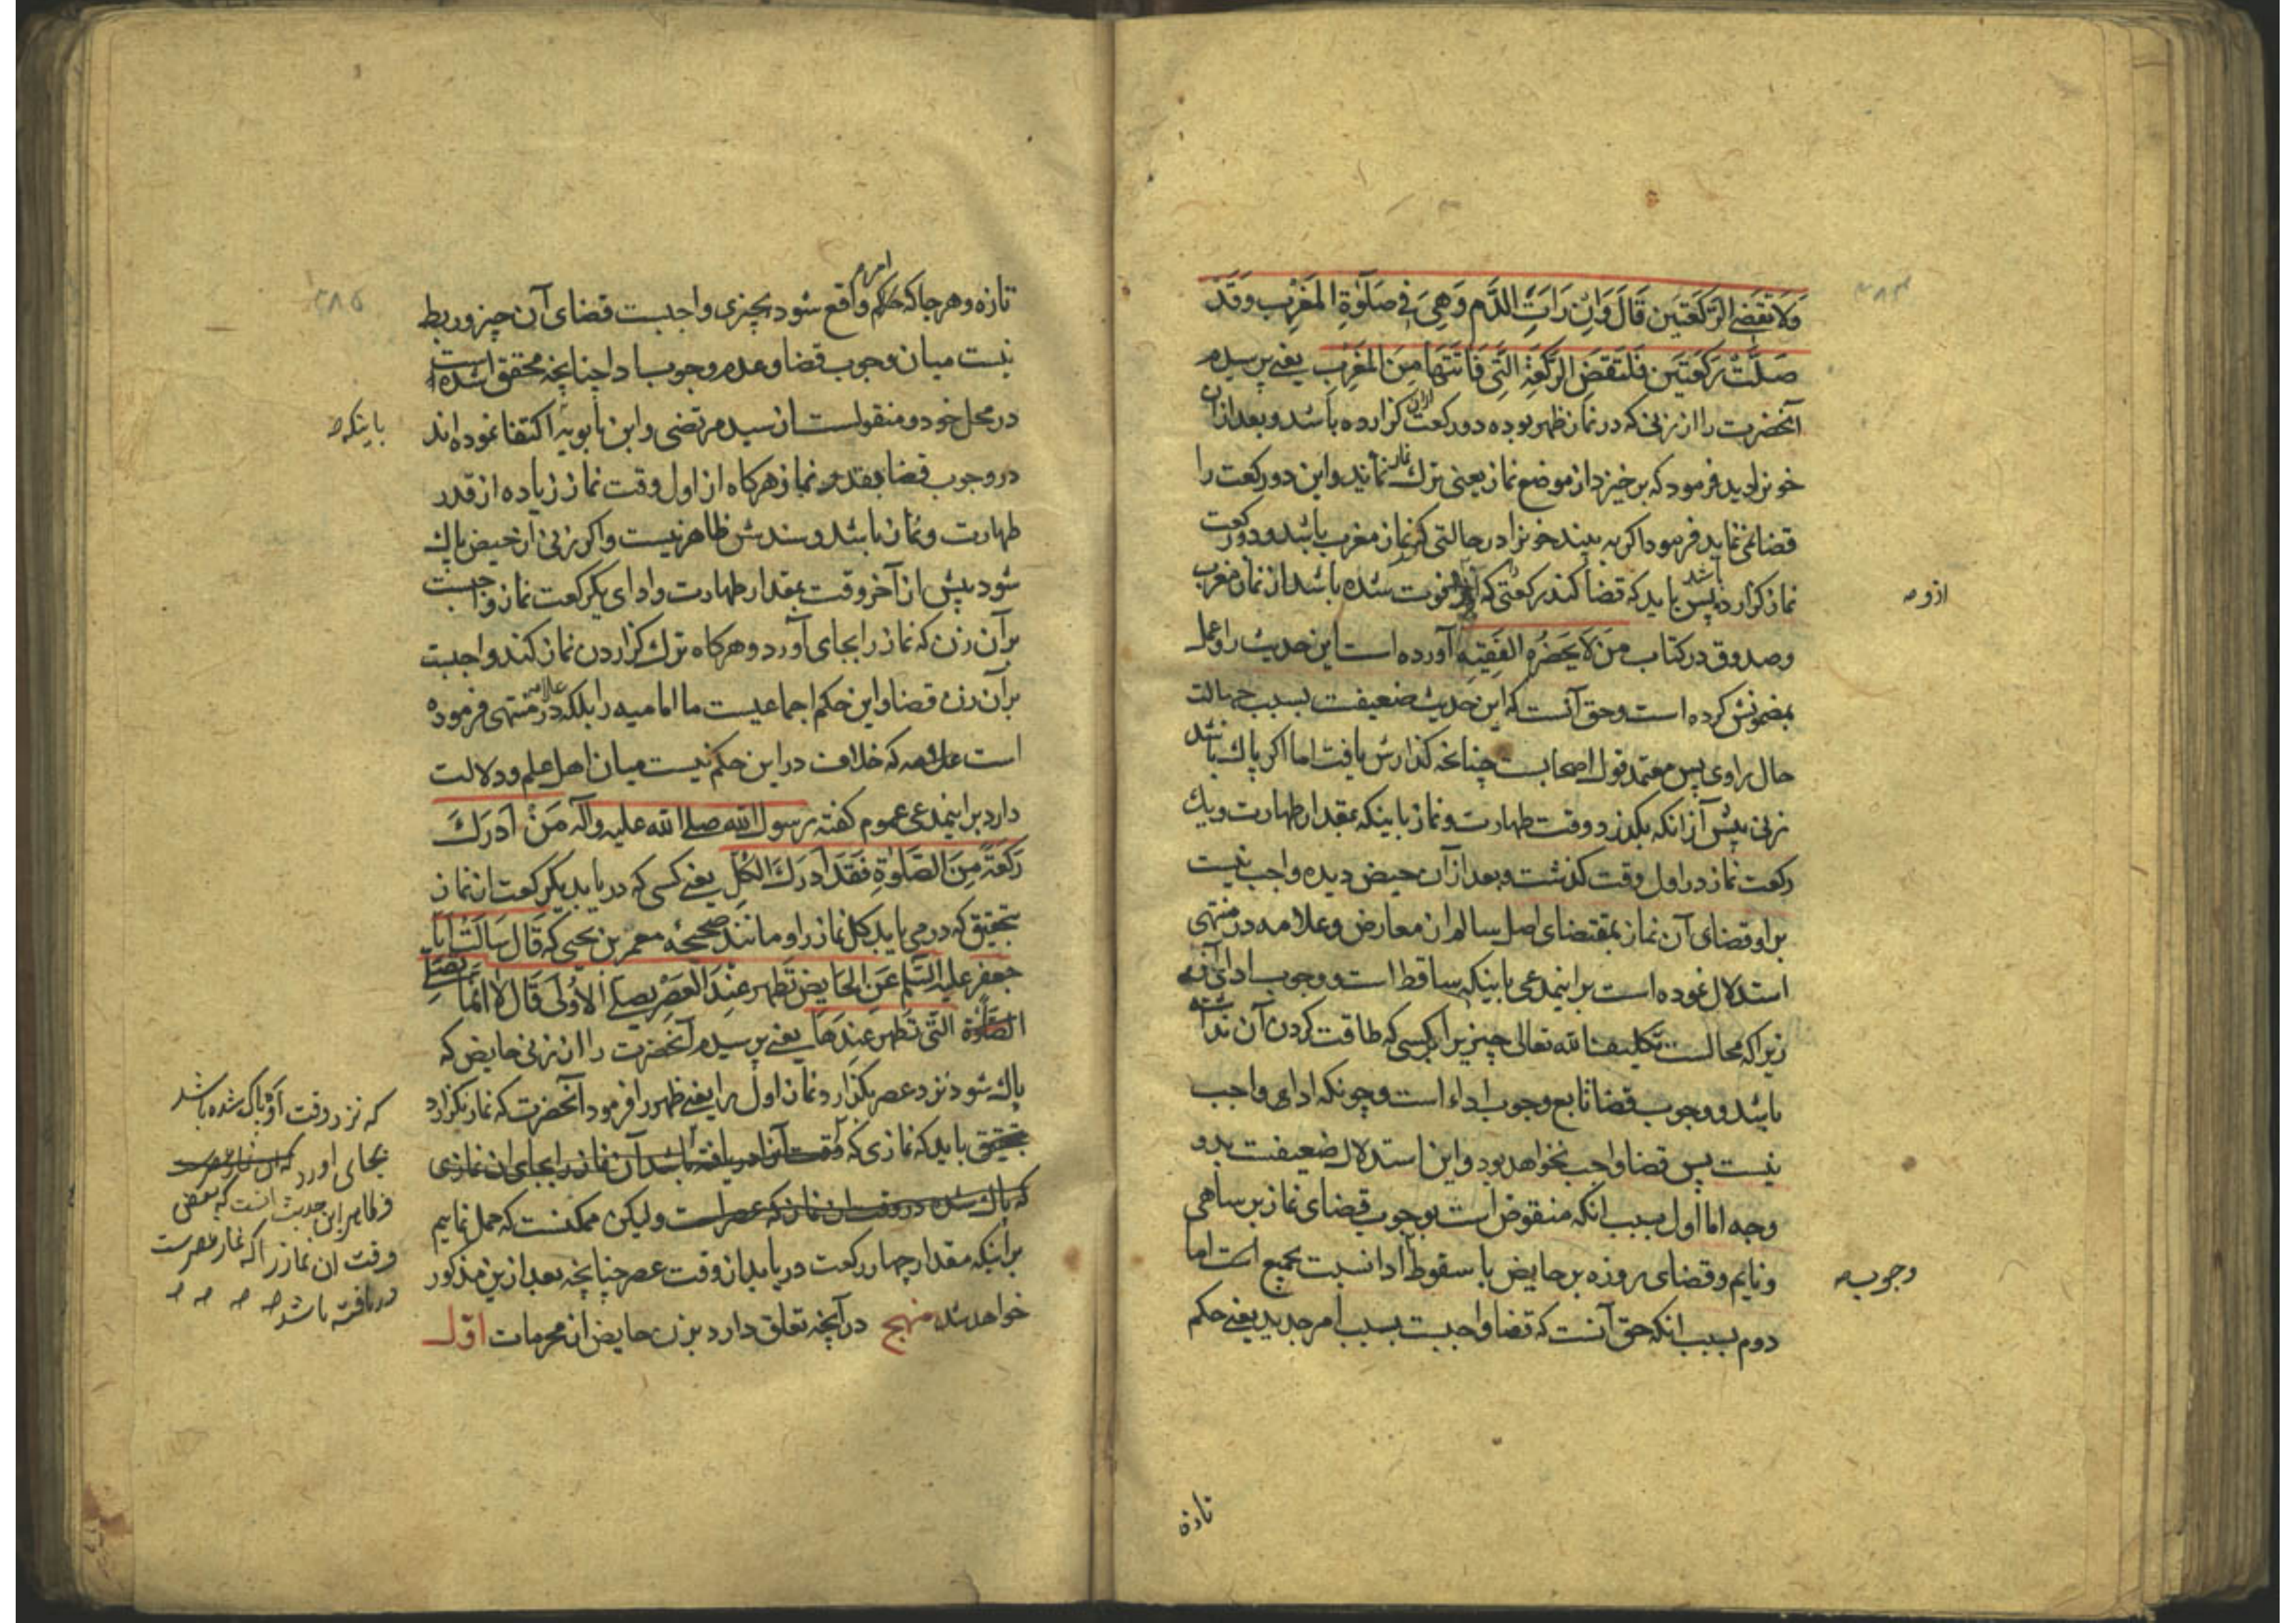 وَلَا تَقْضِي الرَّكْعَتَيْنِ قَالَ وَاِنْ رَاَتِ الدَّم وَهِيَ فِي صَلٰوةِ المَغْرِب وَقَدْ
صَلَّتْ رَكْعَتَيْنِ فَلْتَقْضِ الرَّكْعَةَ الَّتِي فَاتَتْهَا مِنَ المَغْرِب یعنے پرسیدم
آنحضرت را از زنی که در نماز ظهر بوده دو رکعت ازان کزارده باشد و بعد ازان
خون را دید فرمود که برخیزد از موضع نماز یعنی ترك نماز نماید و این دو رکعت را
قضا نمی نماید فرمود اکر به بیند خون را در حالتی که نماز مغرب باشد و دو رکعت
نماز کزارده باشد پس باید که قضا کند رکعتی که فوت شده باشد از نماز مغرب
ازو صه
و صدوق در کتاب مَنْ لَا يَحْضُرُهُ الفَقِيه آورده است این حدیث را و عمل
بمضمونش کرده است و حق آنست که این حدیث ضعیفست بسبب جهالت
حال راوی پس معتمد قول اصحابست چنانچه کذارش یافت اما اکر پاك باشد
زنی پیش از انکه بکذرد وقت طهارت و نماز باینکه بمقدار طهارت و یك
رکعت نماز در اول وقت کذشت و بعد از آن حیض دیده واجب نیست
بر او قضای آن نماز بمقتضای اصل سالم از معارض و علامه در منتهی
استدلال نموده است بر اینمدعی باینکه ساقط است وجوب ادای آن
زیرا که محالست تکلیف الله تعالی چیزی را بر کسی که طاقت کردن آن نداشته
باشد و وجوب قضا تابع وجوب اداء است و چونکه ادای واجب
نیست پس قضا واجب نخواهد بود و این استدلال ضعیفست بدو
وجه اما اول بسبب انکه منقوض است بوجوب قضای نماز بر ساهی
و نایم و قضای روزه بر حایض با سقوط ادا نسبت بجمیع است اما
وجوب صه
دوم بسبب انکه حق آنست که قضا واجبست بسبب امر جدید یعنے حکم
تازه
تازه و هر جا که حکم امر واقع شود بچیزی واجبست قضای آن چیز و ربط
نیست میان وجوب قضا و عدم وجوب ادا چنانچه محقق شده است
در محل خود و منقولست از سید مرتضی و ابن بابویه اکتفا نموده اند
باینکه صه
در وجوب قضا بقدر نماز هرکاه از اول وقت نماز زیاده از قدر
طهارت و نماز باشد و سندش ظاهر نیست و اکر زنی از حیض پاك
شود پیش از آخر وقت بمقدار طهارت و ادای یکرکعت نماز واجبست
بر آن زن که نماز را بجای آورد و هرکاه ترك کزاردن نماز کند واجبست
بر آن زن قضا و این حکم اجماعیست ما امامیه را بلکه علامه در منتهی فرموده
است که خلاف در این حکم نیست میان اهل علم و دلالت
دارد بر اینمدعی عموم کفته رسول الله صلی الله علیه و آله مَنْ اَدْرَكَ
رَكْعَةً مِنَ الصَّلٰوةِ فَقَدْ اَدْرَكَ الكُلّ یعنے کسی که در یابد یکرکعت از نماز
بتحقیق که در می یابد کل نماز را و مانند صحیحهٔ معمر بن یحیی که قَالَ سَاَلْتُ اَبَا
جعفر علیه السّلم عَنِ الحَايِض تَطْهر عِنْدَ العَصْرِ يُصَلّي الاُولَى قَالَ لَا اِنَّمَا تُصَلِّي
الصَّلٰوة الَّتِي تَطْهر عِنْدَهَا یعنے پرسیدم آنحضرت را از زنی حایض که
پاك شود نزد عصر بکزارد نماز اول را یعنے ظهر را فرمود آنحضرت که نماز نکزارد
بتحقیق باید که نمازی که وقت آنرا دریافته باشد آن نماز را بجای ان نمازی
که پاك شده در وقت ان نماز که عصر است و لیکن ممکنست که حمل نماییم
بر اینکه مقدار چهار رکعت در یابد از وقت عصر چنانچه بعد ازین مذکور
خواهد شد منهج در آنچه تعلق دارد بزن حایض از محرمات اوّل
که نزد وقت او پاك شده باشد
بجای اورد که ان نماز عصرست
و ظاهر این حدیث انست که بعض
وقت ان نماز را که نماز عصرست
دریافته باشد صه